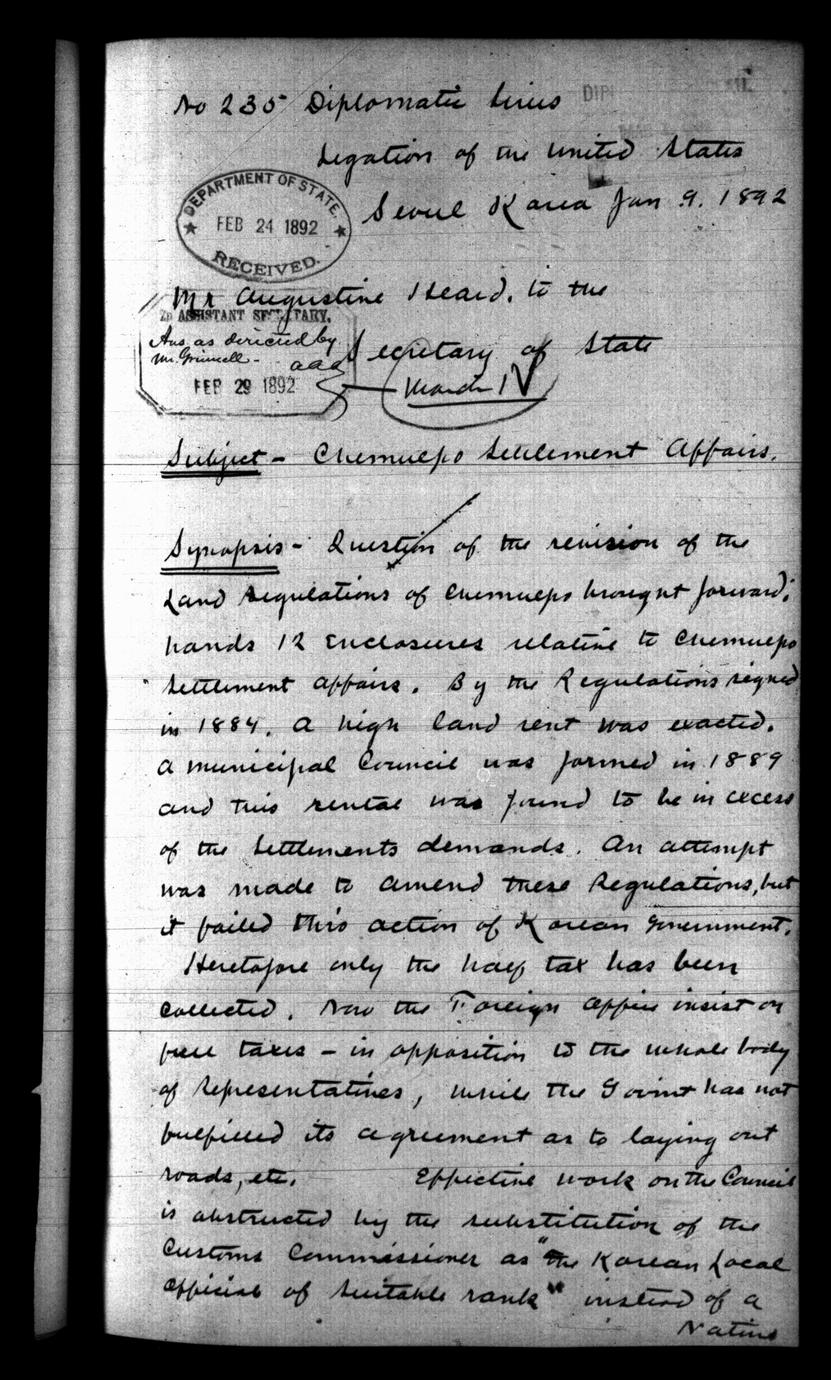 No 235 Diplomatic Series
Legation of the United States
Seoul Korea Jan 9. 1892
DEPARTMENT OF STATE.
FEB 24 1892
RECEIVED.
Mr Augustine Heard. to the
Secretary of State
2D ASSISTANT SECRETARY.
Ans as directed by
Mr. Grinnell -
aaa
FEB 29 1892
March 1
Subject - Chemulpo Settlement Affairs.
Synopsis - Question of the revision of the
Land Regulations of Chemulpo brought forward;
hands 12 Enclosures relative to Chemulpo
Settlement affairs. By the Regulations signed
in 1884. a high land rent was exacted.
A municipal Council was formed in 1889
and this rental was found to be in excess
of the Settlements demands. An attempt
was made to amend these Regulations, but
it failed thro action of Korean Government.
Heretofore only the half tax has been
collected. Now the Foreign Office insist on
full taxes - in opposition to the whole body
of Representatives, while the Govmt has not
fulfilled its agreement as to laying out
roads, etc. Effective work on the Council
is obstructed by the substitution of the
Customs Commissioner as "the Korean Local
Official of Suitable rank" instead of a
Native